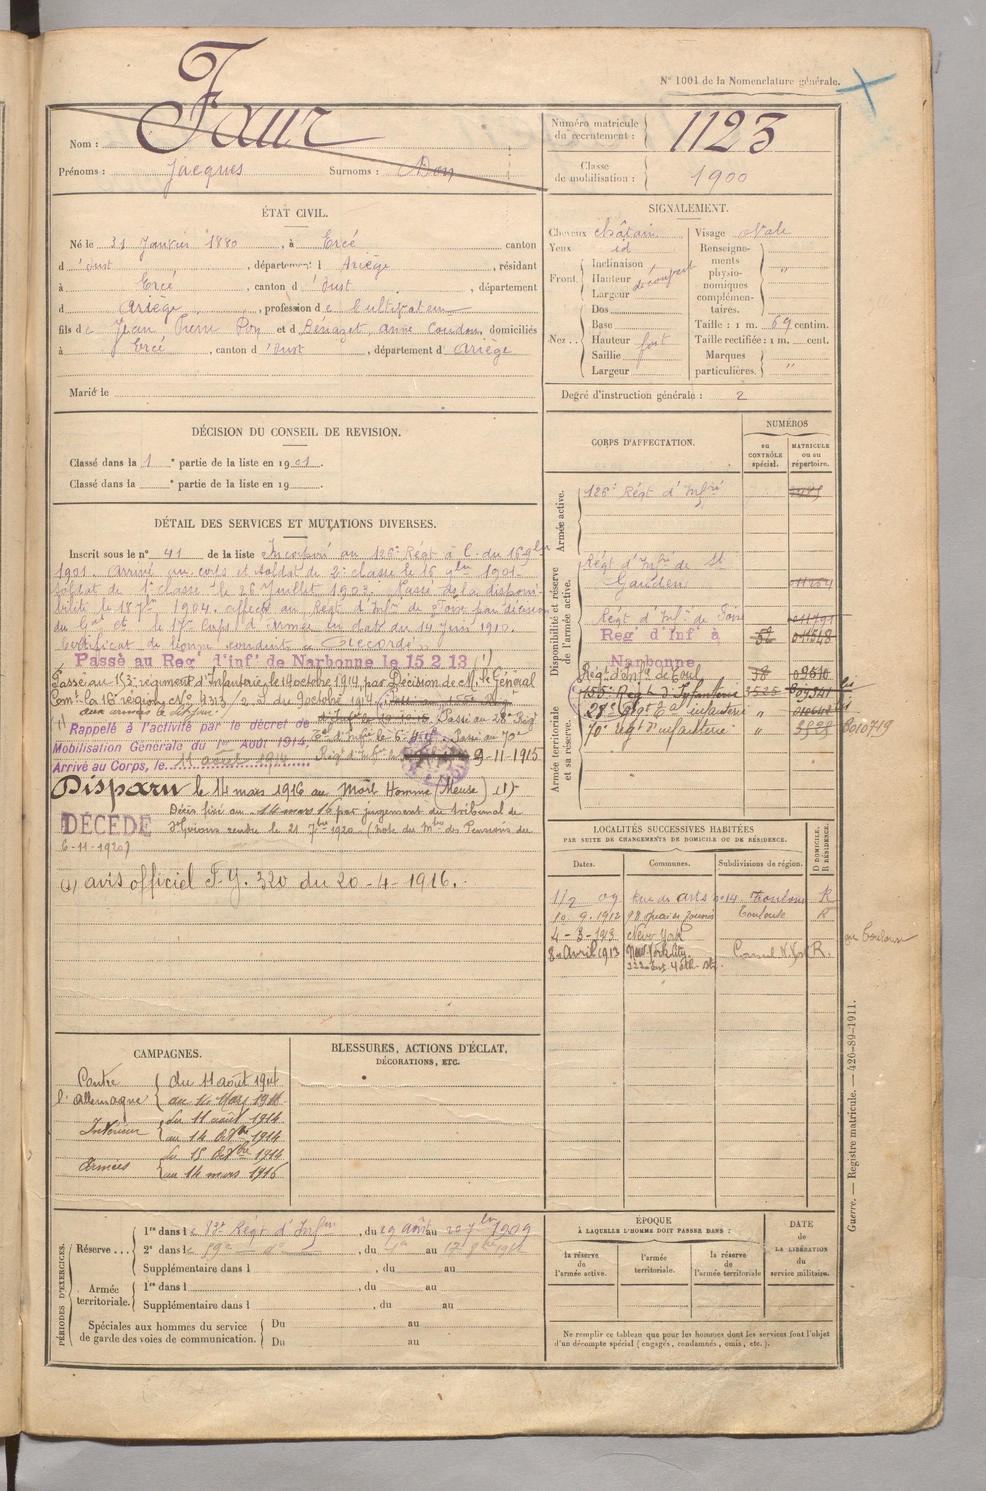 N° 1001 de la Nomenclature générale.
Nom : Faur
Prénoms : Jacques Surnoms :
Numéro matricule du recrutement : 1123
Classe de mobilisation : 1900
ÉTAT CIVIL.
Né le 31 Janvier 1880, à Ercé canton
d'Oust, département d Ariège, résidant
à Ercé, canton d'Oust, département
d Ariège, profession de Cultivateur
fils de Jean Pierre et d Anne Coudon, domiciliés
à Ercé, canton d'Oust, département d Ariège
Marié le
SIGNALEMENT.
Cheveux châtain
Yeux id
Front. Inclinaison
Hauteur découvert
Largeur
Nez.. Dos
Base
Hauteur fort
Saillie
Largeur
Visage ovale
Renseignements physionomiques complémentaires. "
Taille : 1 m. 69 centim.
Taille rectifiée : 1 m. cent.
Marques particulières. "
Degré d'instruction générale : 2
DÉCISION DU CONSEIL DE REVISION.
Classé dans la 1e partie de la liste en 1901.
Classé dans la e partie de la liste en 19
DÉTAIL DES SERVICES ET MUTATIONS DIVERSES.
Inscrit sous le n° 41 de la liste Incorporé au 126e Régt à C. du 16 9bre
1901. Arrivé au corps et soldat de 2e classe le 16 9bre 1901.
Soldat de 1e classe le 26 Juillet 1903. Passé de la disponi-
bilité le 1904. affecté au Régt d'Infie de Foix par décision
du Gal Ct le 17e Corps d'Armée en date du 14 Juin 1910.
Certificat de bonne conduite "Accordé"
Passé au Reg' d'inf' de Narbonne le 15 2 13 (1)
Passé au 153e régiment d'Infanterie, le 14 octobre 1914, par Décision de M. le Général
Comt la 16e région No 9313/2 S du 9 octobre 1914
aux armées le dit jour.
(1) Rappelé à l'activité par le décret de
Mobilisation Générale du 1er Août 1914,
Arrivé au Corps, le 11 août 1914
Passé au 28e Régt
Passé au 70e
Régt d'Infie le 9-11-1915
Disparu le 14 mars 1916 au Mort Homme (Meuse) (1)
DÉCÉDÉ
Décès fixé au 14 mars 16 par jugement du tribunal de
St Girons rendu le 21 7bre 1920. (Note du Mtre des Pensions du
6-11-1920)
(1) avis officiel F.Y. 320 du 20-4-1916.
CORPS D'AFFECTATION.
NUMÉROS
au contrôle spécial.
matricule ou au répertoire.
Armée active.
126e Régt d'Infie
Disponibilité et réserve de l'armée active.
Régt d'Infie de St Gaudens
Régt d'Infie de Foix
Reg' d'Inf' à Narbonne
Régt d'Infie de Toul
Armée territoriale et sa réserve.
153e Régt d'Infanterie 3525
28e Régt d'infanterie "
70e régt d'infanterie " Bo10719
LOCALITÉS SUCCESSIVES HABITÉES
PAR SUITE DE CHANGEMENTS DE DOMICILE OU DE RÉSIDENCE.
Dates. Communes. Subdivisions de région. D domicile, R résidence.
1/2 09 Rue des arts n° 14 Toulouse R
19. 9. 1912 Toulouse R
4-3-1913 New York
8 Avril 1913 New York City. Consul N. York R.
CAMPAGNES.
Contre l'Allemagne du 11 août 1914
au 14 Mars 1916
Intérieur du 11 août 1914
au 14 Octbre 1914
Armées du 15 Octbre 1914
au 14 mars 1916
BLESSURES, ACTIONS D'ÉCLAT,
DÉCORATIONS, ETC.
PÉRIODES D'EXERCICES.
Réserve... 1re dans le 83e Régt d'Infie, du 29 août au 20 7bre 1909
2e dans le 59e do, du 1er au 17
Supplémentaire dans l , du au
Armée territoriale. 1re dans l , du au
Supplémentaire dans l , du au
Spéciales aux hommes du service de garde des voies de communication. Du au
Du au
ÉPOQUE
À LAQUELLE L'HOMME DOIT PASSER DANS :
la réserve de l'armée active.
l'armée territoriale.
la réserve de l'armée territoriale
DATE de LA LIBÉRATION du service militaire.
Ne remplir ce tableau que pour les hommes dont les services font l'objet
d'un décompte spécial (engagés, condamnés, omis, etc.).
Guerre. — Registre matricule. — 426-89-1911.